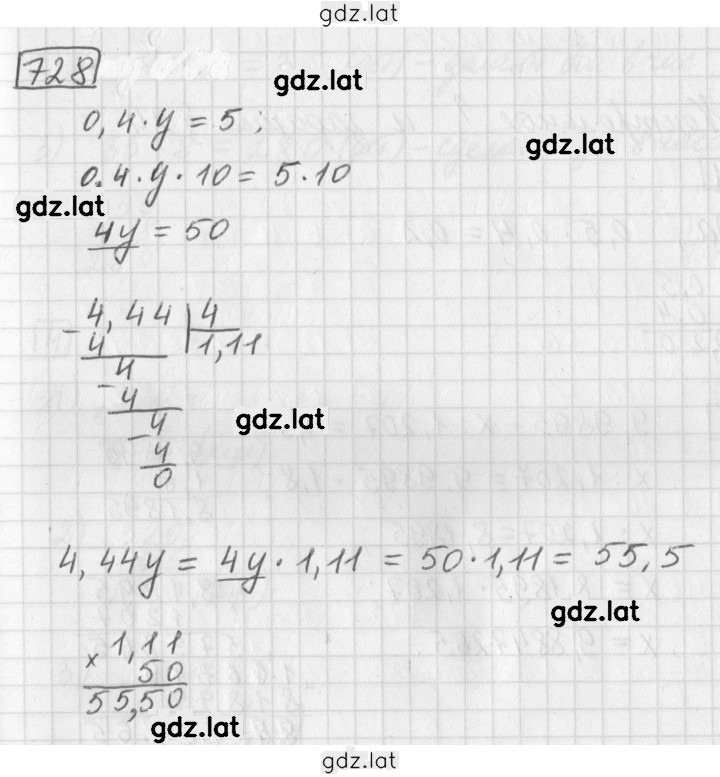 gdz.lat
728
gdz.lat
0,4 · y = 5;
gdz.lat
0.4 · y · 10 = 5 · 10
gdz.lat
4y = 50
- 4,44 | 4
4 1,11
4
- 4
4
- 4
gdz.lat
0
4,44y = 4y · 1,11 = 50 · 1,11 = 55,5
gdz.lat
1,11
× 50
55,50
gdz.lat
gdz.lat